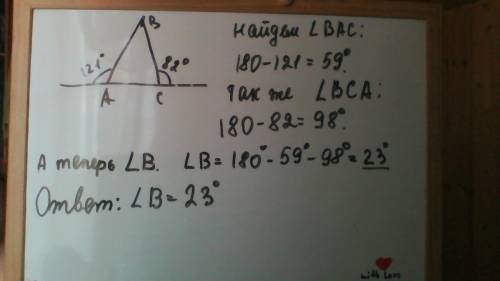 B
121°
82°
A
C
найдем ∠BAC:
180-121=59°.
так же ∠BCA:
180-82=98°.
А теперь ∠B. ∠B=180°-59°-98°=23°
Ответ: ∠B=23°
with Love